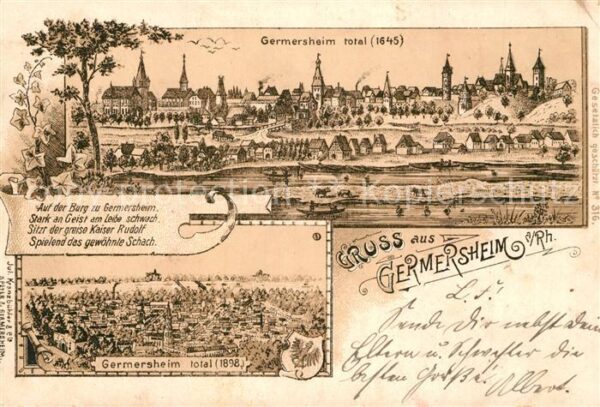 Germersheim total (1645)
Gesetzlich geschützt No 316.
Auf der Burg zu Germersheim,
Stark an Geist am Leibe schwach
Sitzt der greise Kaiser Rudolf
Spielend das gewohnte Schach.
GRUSS aus
GERMERSHEIM a/Rh.
Germersheim total (1898)
L. F.!
Sende Dir nebst Dein
Eltern u. Schwester die
besten Grüße!
Albert.